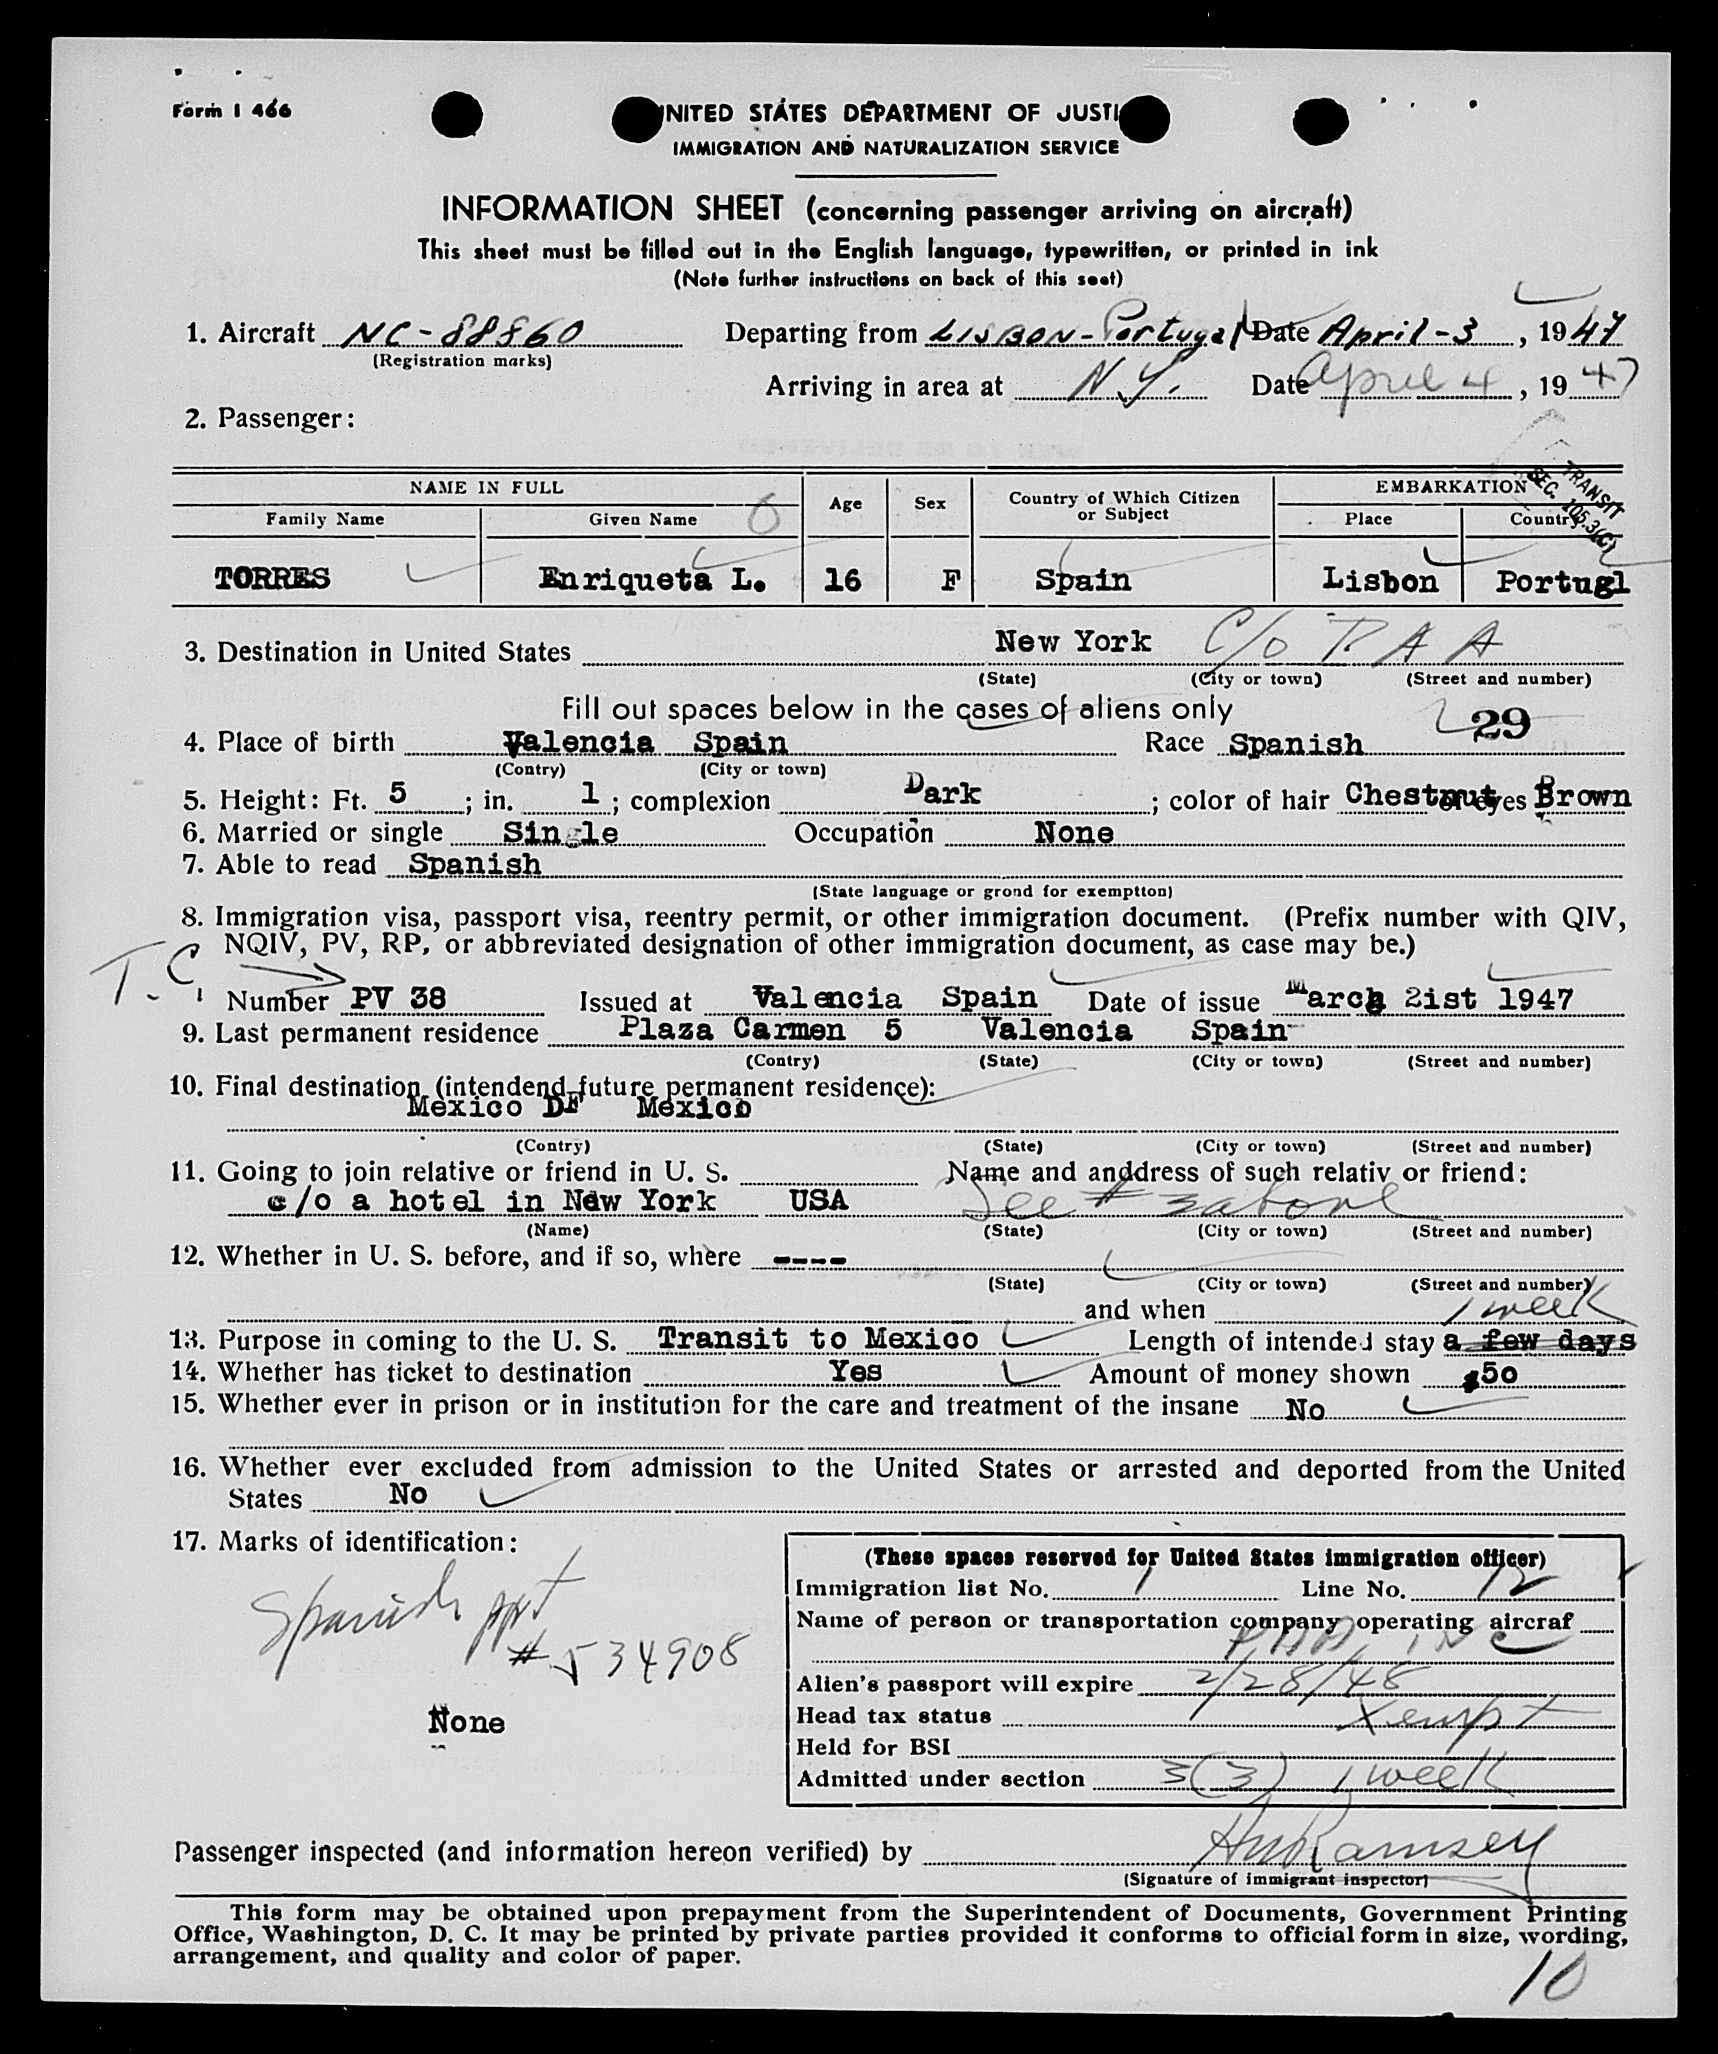 Form I 466
UNITED STATES DEPARTMENT OF JUSTI
IMMIGRATION AND NATURALIZATION SERVICE
INFORMATION SHEET (concerning passenger arriving on aircraft)
This sheet must be filled out in the English language, typewritten, or printed in ink
(Note further instructions on back of this seet)
1. Aircraft NC-88860 Departing from LISBON-Portugal Date April-3, 1947
(Registration marks)
Arriving in area at N.Y. Date April 4, 1947
2. Passenger:
NAME IN FULL Age Sex Country of Which Citizen or Subject EMBARKATION
Family Name Given Name Place Country
TRANSIT
SEC. 105.3(C)
TORRES Enriqueta L. 16 F Spain Lisbon Portugl
3. Destination in United States New York C/o P A A
(State) (City or town) (Street and number)
Fill out spaces below in the cases of aliens only
29
4. Place of birth Valencia Spain Race Spanish
(Contry) (City or town)
5. Height: Ft. 5; in. 1; complexion Dark; color of hair Chestnut of eyes Brown
6. Married or single Single Occupation None
7. Able to read Spanish
(State language or grond for exemptton)
8. Immigration visa, passport visa, reentry permit, or other immigration document. (Prefix number with QIV,
NQIV, PV, RP, or abbreviated designation of other immigration document, as case may be.)
T.C
Number PV 38 Issued at Valencia Spain Date of issue March 2ist 1947
9. Last permanent residence Plaza Carmen 5 Valencia Spain
(Contry) (State) (City or town) (Street and number)
10. Final destination (intendend future permanent residence):
Mexico DF Mexico
(Contry) (State) (City or town) (Street and number)
11. Going to join relative or friend in U. S. Name and anddress of such relativ or friend:
c/o a hotel in New York USA See # 3 above
(Name) (State) (City or town) (Street and number)
12. Whether in U. S. before, and if so, where ----
(State) (City or town) (Street and number)
and when
1 week
13. Purpose in coming to the U. S. Transit to Mexico Length of intended stay a few days
14. Whether has ticket to destination Yes Amount of money shown $50
15. Whether ever in prison or in institution for the care and treatment of the insane No
16. Whether ever excluded from admission to the United States or arrested and deported from the United
States No
17. Marks of identification:
Spanish ppt
# 534908
None
(These spaces reserved for United States immigration officer)
Immigration list No. 1 Line No. 12
Name of person or transportation company operating aircraf
PAA, INC
Alien's passport will expire 2/28/48
Head tax status Xempt
Held for BSI
Admitted under section 3(3) 1 week
Passenger inspected (and information hereon verified) by HW Ramsey
(Signature of immigrant inspector)
This form may be obtained upon prepayment from the Superintendent of Documents, Government Printing
Office, Washington, D. C. It may be printed by private parties provided it conforms to official form in size, wording,
arrangement, and quality and color of paper.
10